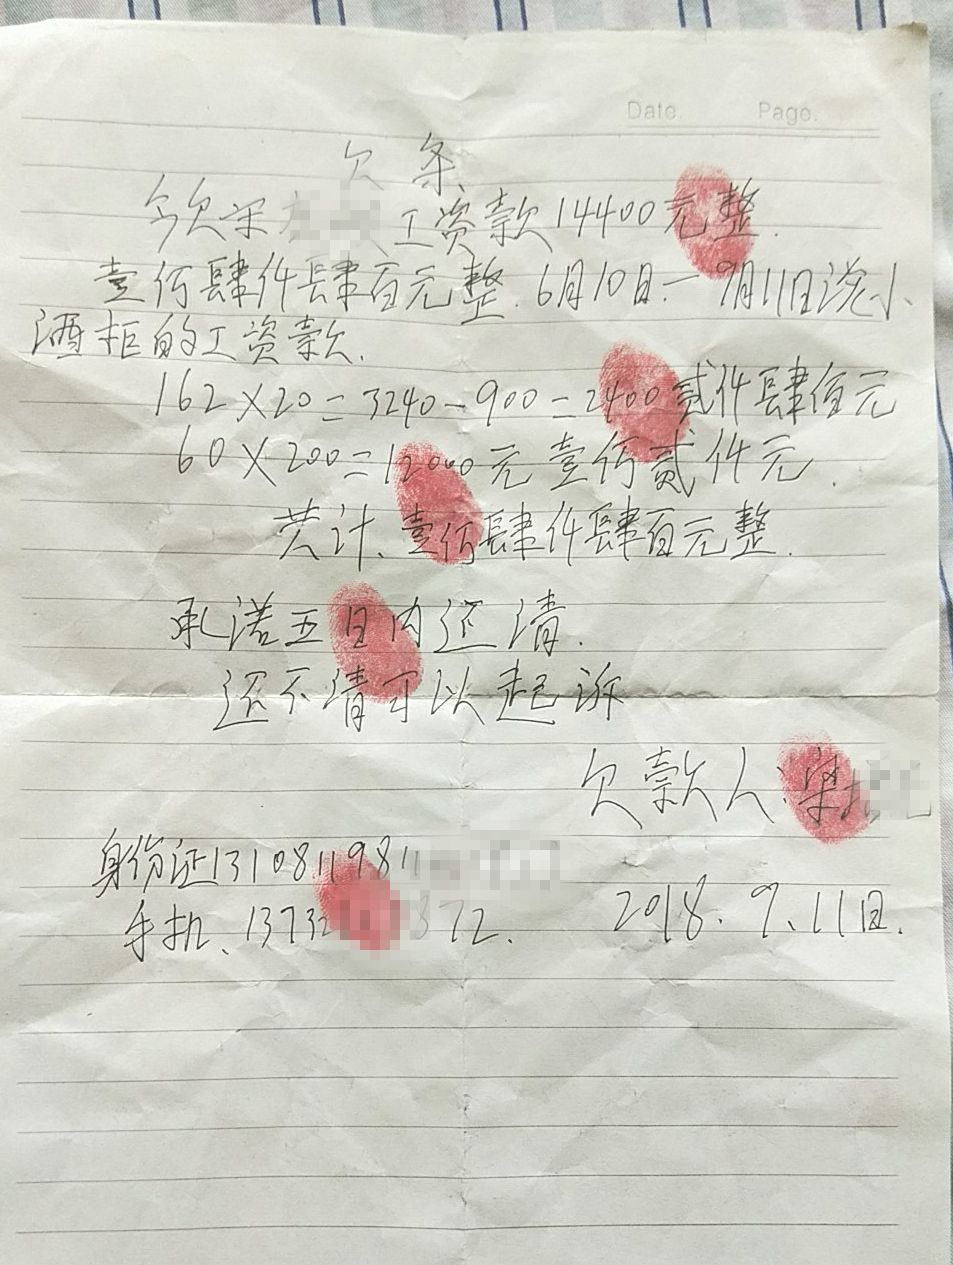 Date. Page.
欠条
今欠 工资款14400元整.
壹仟肆仟肆百元整.6月10日—9月11日
酒柜的工资款.
162×20=3240-900=2400贰仟肆佰元
60×200=12000元壹仟贰仟元.
共计、壹仟肆仟肆百元整.
承诺五日内还清.
还不清可以起诉
欠款人:梁
身份证1310811981
手机、1373 872.
2018.9.11日.